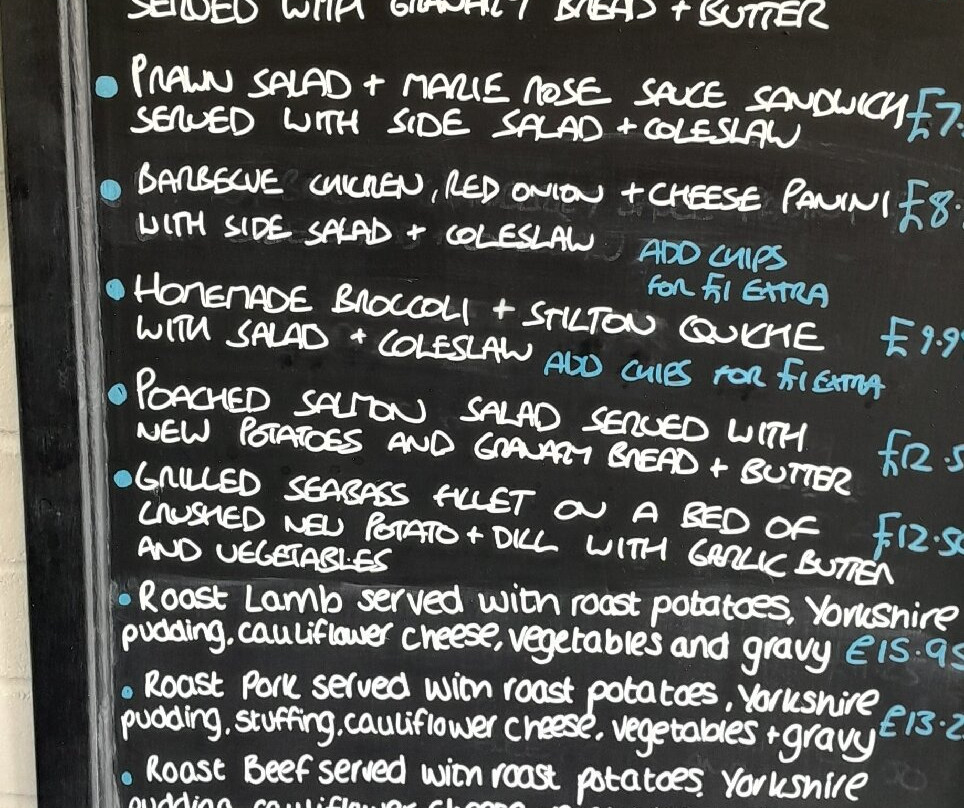 SERVED WITH GRANARY BREAD + BUTTER
• PRAWN SALAD + MARIE ROSE SAUCE SANDWICH £7.
SERVED WITH SIDE SALAD + COLESLAW
• BARBECUE CHICKEN, RED ONION + CHEESE PANINI £8.
WITH SIDE SALAD + COLESLAW
ADD CHIPS
FOR £1 EXTRA
• HOMEMADE BROCCOLI + STILTON QUICHE £9.9
WITH SALAD + COLESLAW ADD CHIPS FOR £1 EXTRA
• POACHED SALMON SALAD SERVED WITH
NEW POTATOES AND GRANARY BREAD + BUTTER £12.5
• GRILLED SEABASS FILLET ON A BED OF
CRUSHED NEW POTATO + DILL WITH GARLIC BUTTER £12.50
AND VEGETABLES
• Roast Lamb served with roast potatoes, Yorkshire
pudding, cauliflower cheese, vegetables and gravy £15.95
• Roast Pork served with roast potatoes, Yorkshire
pudding, stuffing, cauliflower cheese, vegetables + gravy £13.2
• Roast Beef served with roast potatoes, Yorkshire
pudding, cauliflower cheese